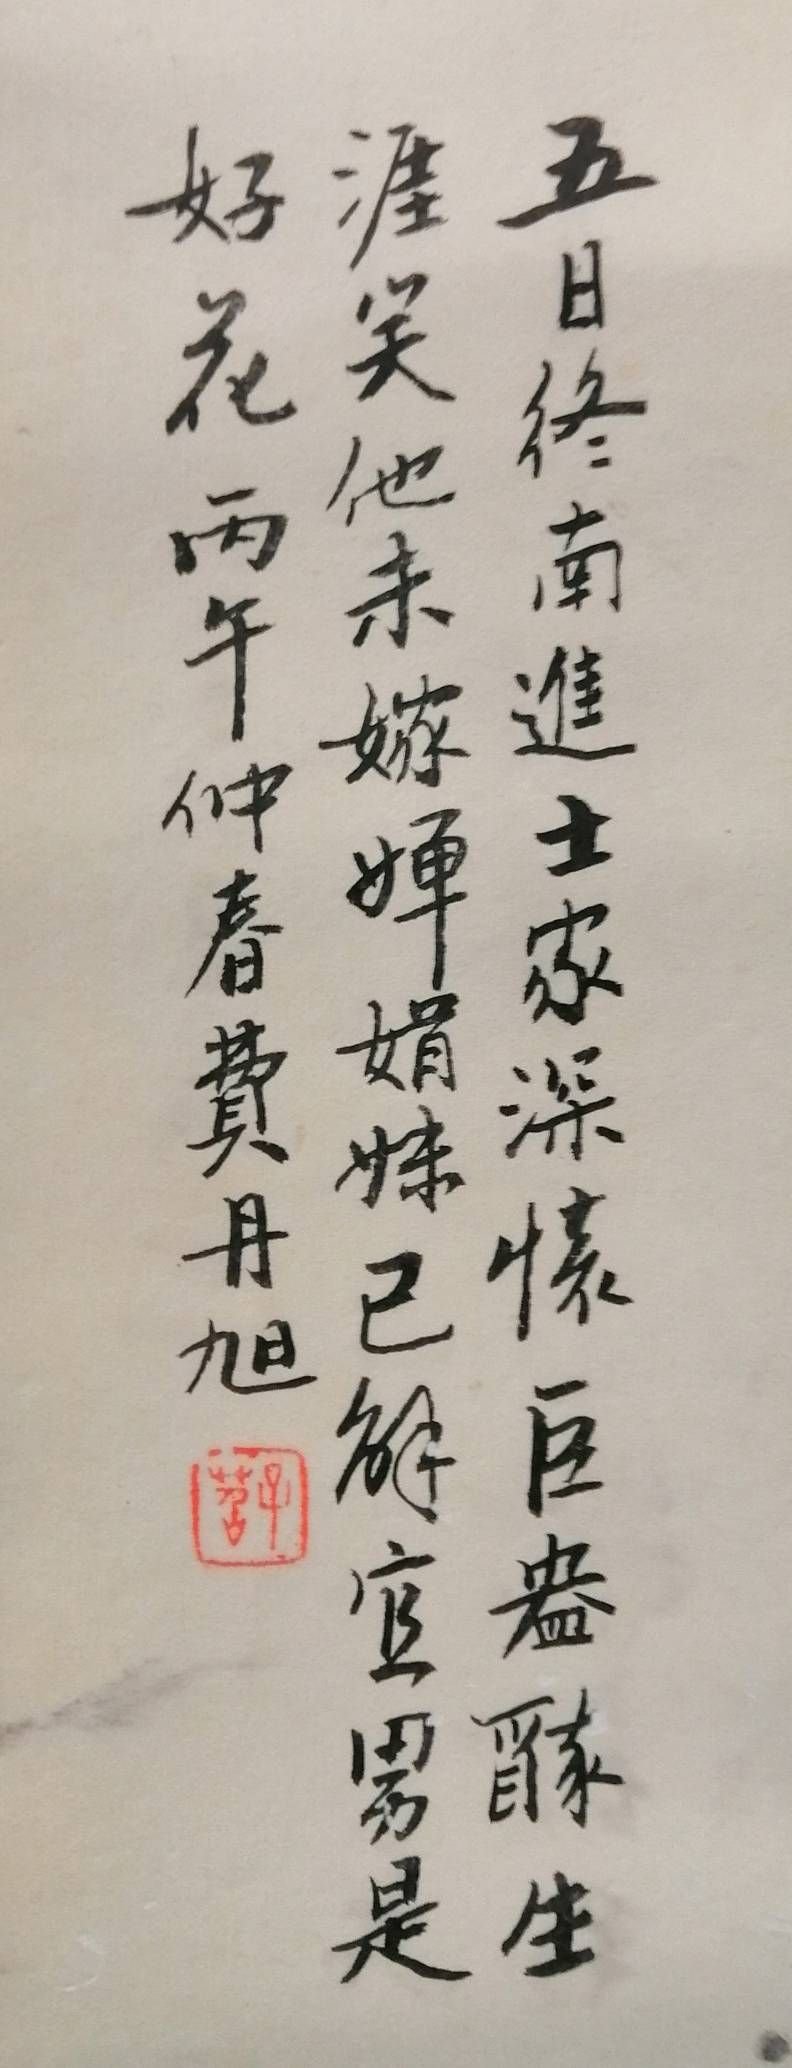 五日終南進士家深懷巨盎醉生
涯笑他未嫁嬋娟妹已解宜男是
好花 丙午仲春費丹旭